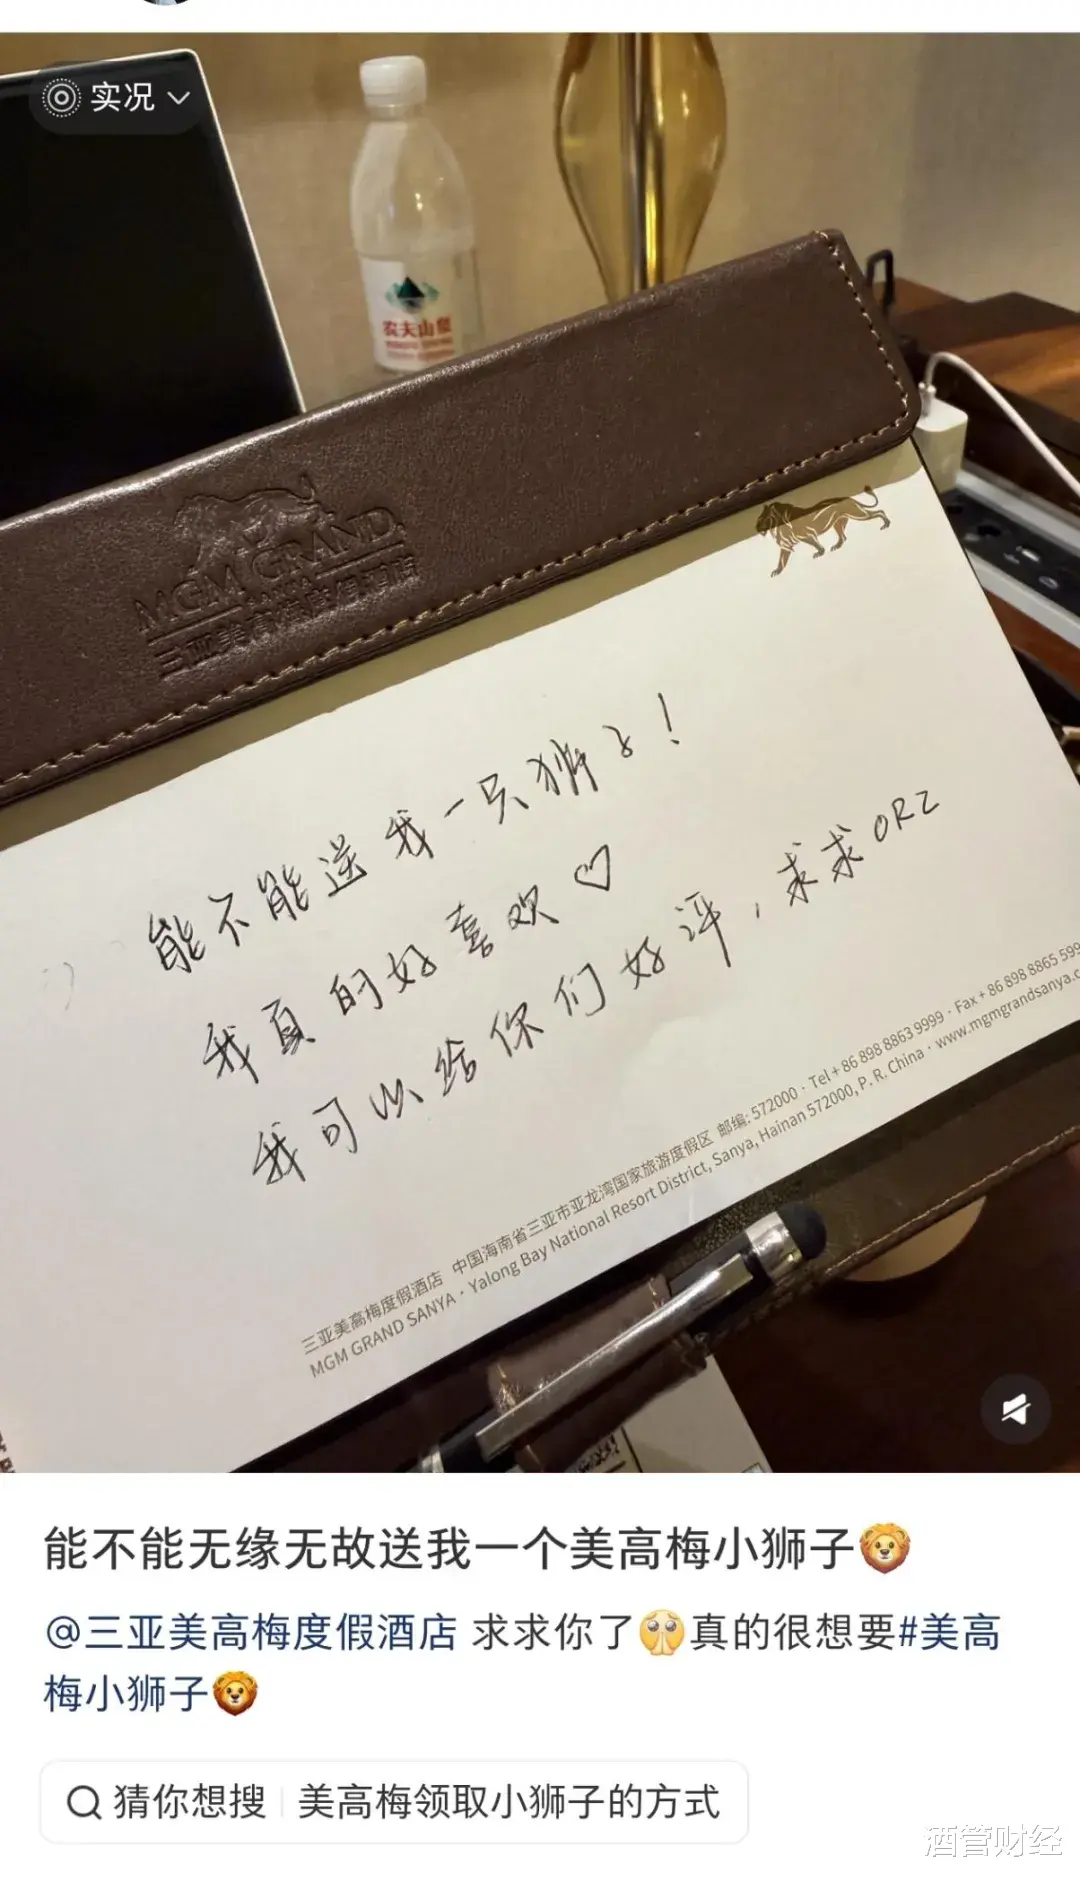 实况
农夫山泉
MGM GRAND
SANYA
三亚美高梅度假酒店
能不能送我一只狮子！
我真的好喜欢♡
我可以给你们好评，求求ORZ
三亚美高梅度假酒店 中国海南省三亚市亚龙湾国家旅游度假区 邮编: 572000 · Tel + 86 898 8863 9999 · Fax + 86 898 8865 599
MGM GRAND SANYA · Yalong Bay National Resort District, Sanya, Hainan 572000, P. R. China · www.mgmgrandsanya.c
能不能无缘无故送我一个美高梅小狮子🦁
@三亚美高梅度假酒店 求求你了🥹真的很想要#美高
梅小狮子🦁
猜你想搜 美高梅领取小狮子的方式
酒管财经